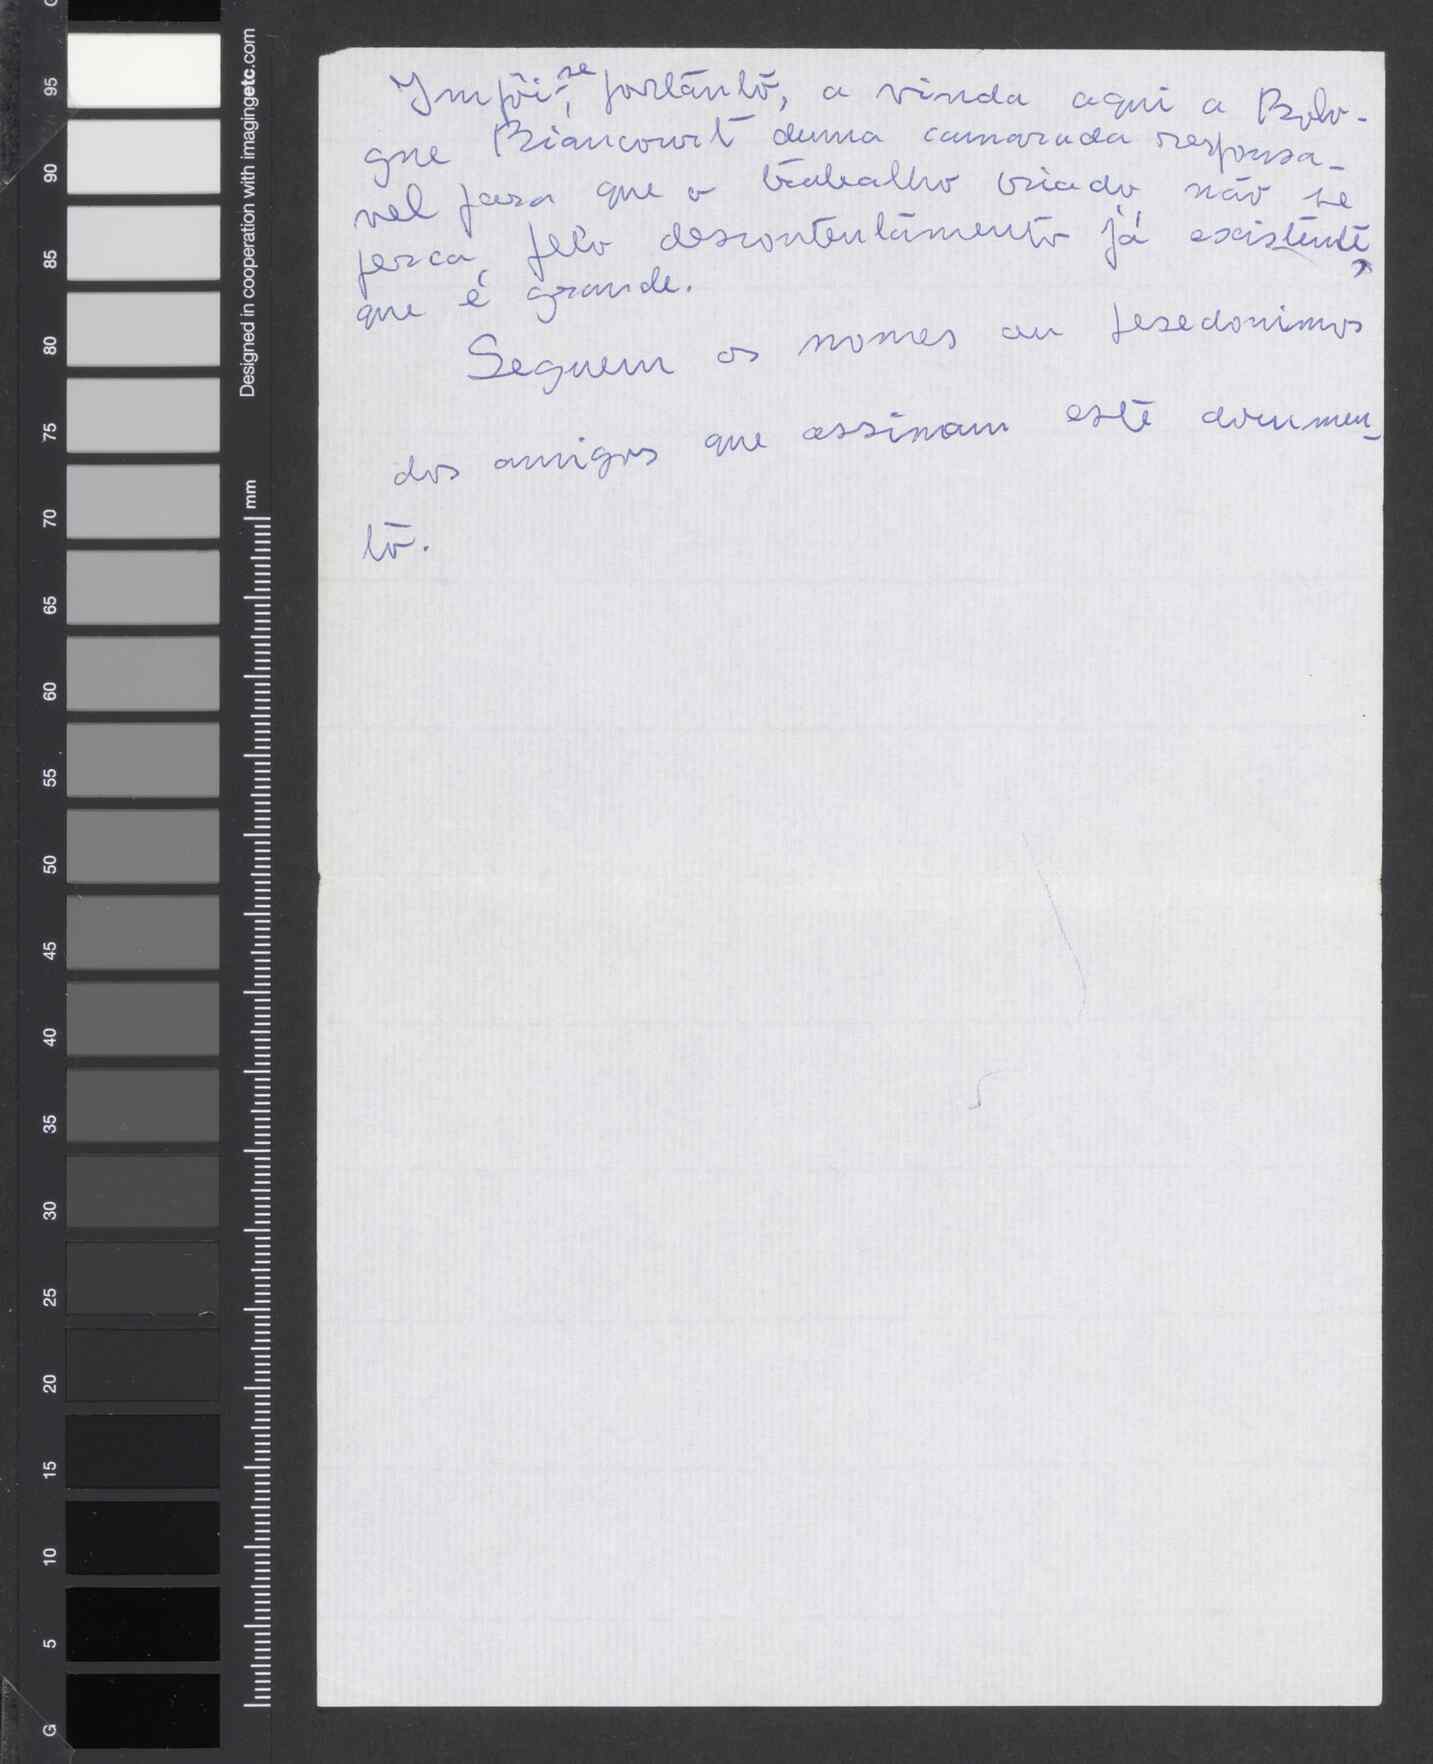 Impõi-se, portanto, a vinda aqui a Bolo-
gne Biancourt duma camarada responsa-
vel para que o trabalho criado não se
perca pelo descontentamento já existente,
que é grande.
Seguem os nomes ou pesedonimos
dos amigos que assinam este documen-
to.
Designed in cooperation with imagingetc.com
mm
95
90
85
80
75
70
65
60
55
50
45
40
35
30
25
20
15
10
5
G